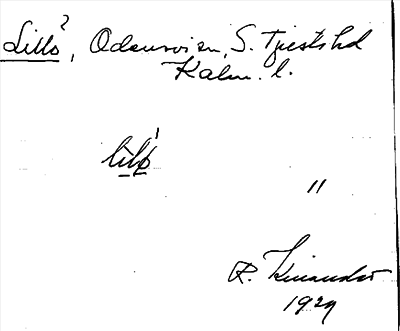 Lillö?, Odensvi sn, S. Tjusts hd
Kalm. l.
lilö "
R. Kinander
1929